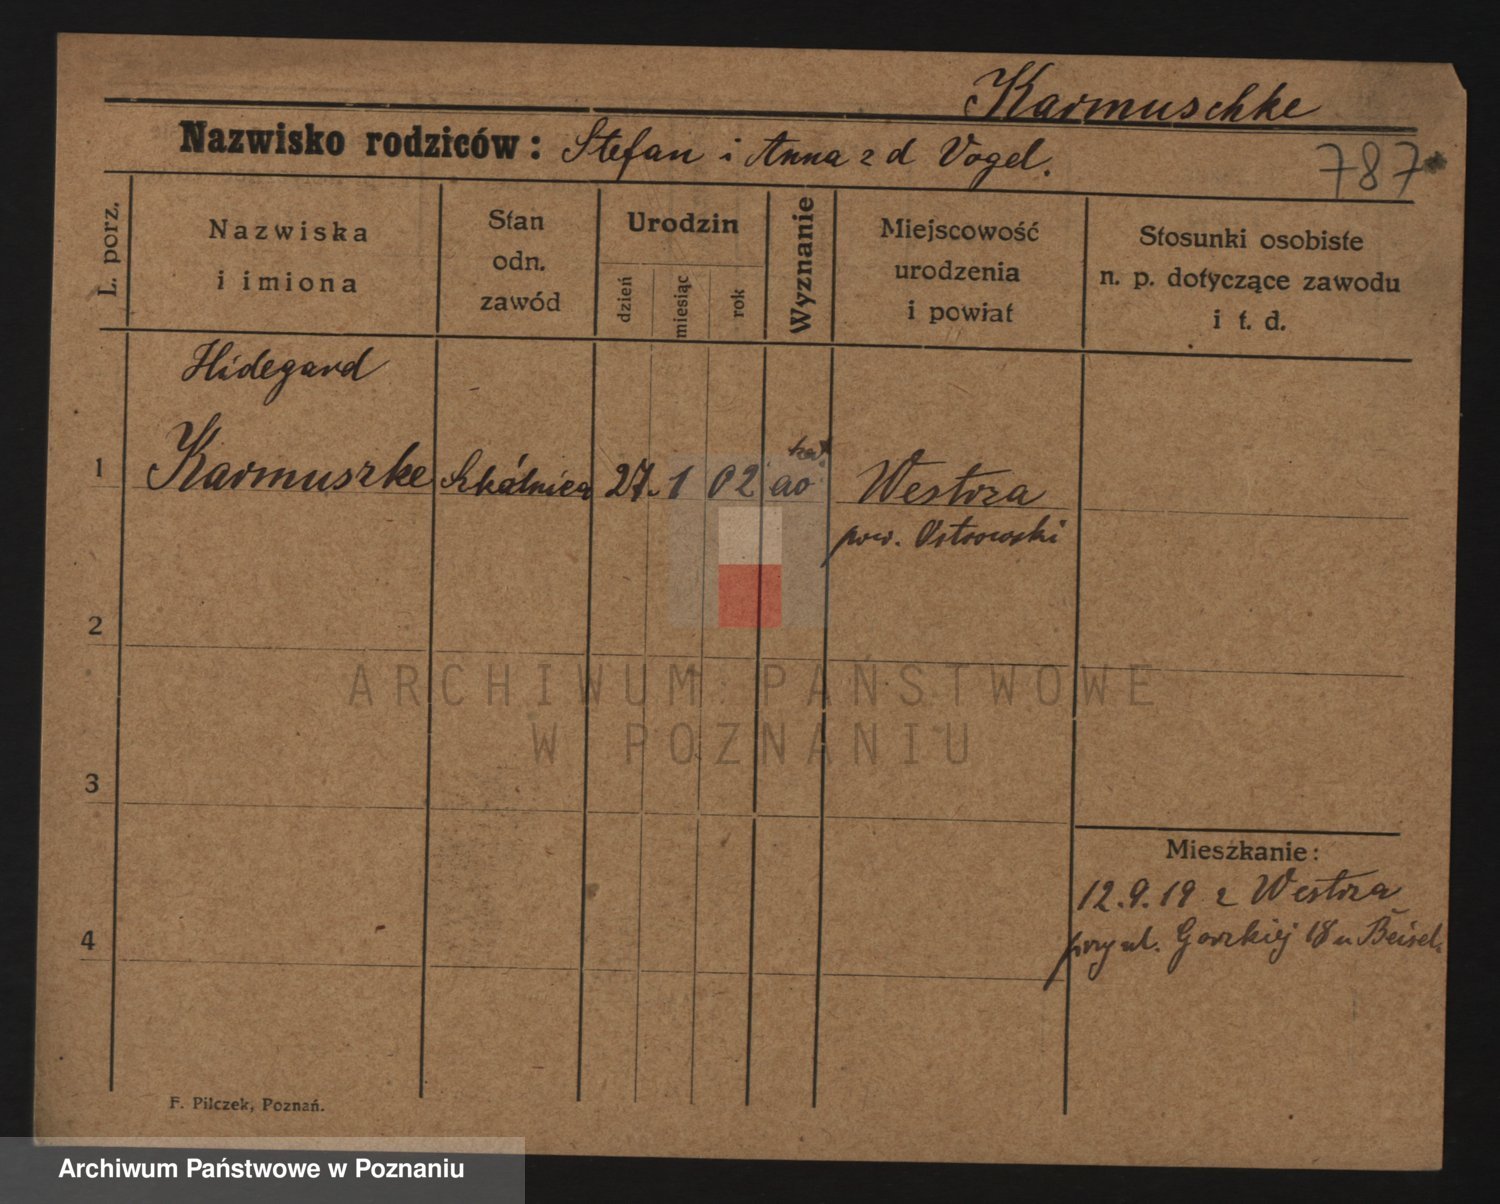 Karmuschke
Nazwisko rodziców: Stefan i Anna z d Vogel.
787
L. porz.
Nazwiska
i imiona
Stan
odn.
zawód
Urodzin
dzień
miesiąc
rok
Wyznanie
Miejscowość
urodzenia
i powiat
Stosunki osobiste
n. p. dotyczące zawodu
i t. d.
Hidegard
1 Karmuszke 27. 1 02 Westrza
kat.
pow. Ostrowski
2
ARCHIWUM PAŃSTWOWE
W POZNANIU
3
Mieszkanie:
12.9.19 z Westrza
4
przy ul. Gorzkiej 18 u Beisel.
F. Pilczek, Poznań.
Archiwum Państwowe w Poznaniu